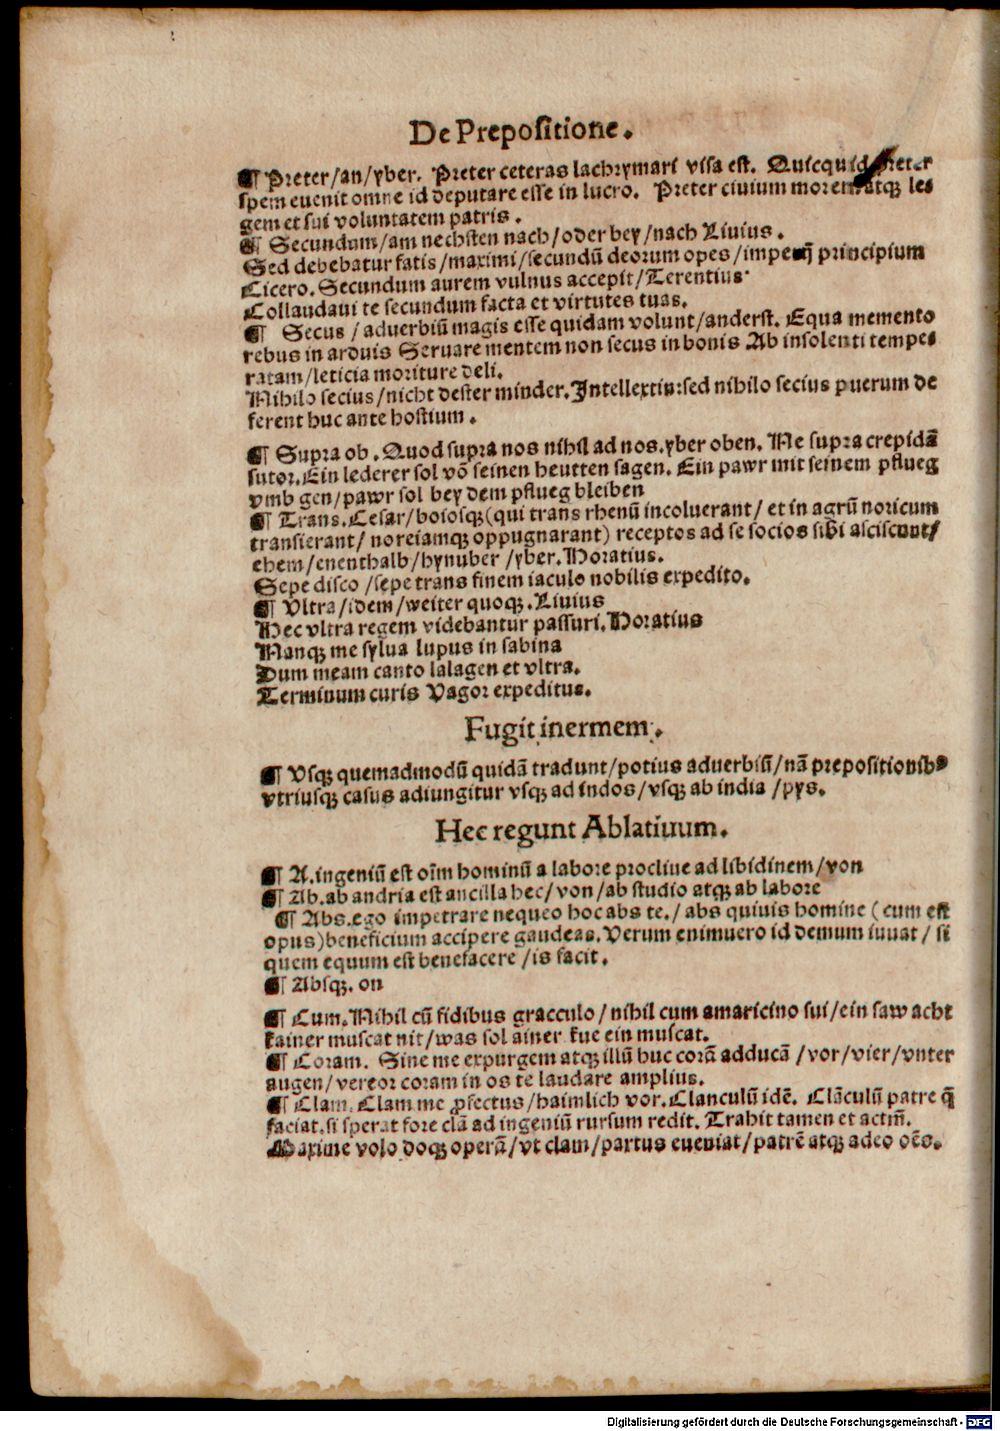 De Prepositione.
¶ Preter/an/yber. Preter ceteras lachrymari visa est. Quicquid preter
spem euenit omne id deputare esse in lucro. Preter ciuium morem atqꝫ le⸗
gem et sui voluntatem patris.
¶ Secundum/am nechsten nach/oder bey/nach Liuius.
Sed debebatur fatis/maximi/secundū deorum opes/imperiq̄ principium
Cicero. Secundum aurem vulnus accepit/Terentius·
Collaudaui te secundum facta et virtutes tuas.
¶ Secus/aduerbiū magis esse quidam volunt/anderst. Equa memento
rebus in arduis Seruare mentem non secus in bonis Ab insolenti tempe⸗
ratam/leticia moriture deli.
Nihilo secius/nicht dester minder. Intellextin:sed nihilo secius puerum de
ferent huc ante hostium.
¶ Supra ob. Quod supra nos nihil ad nos. yber oben. Ne supra crepidā
sutor. Ein lederer sol vō seinen heutten sagen. Ein pawr mit seinem pflueg
vmb gen/pawr sol bey dem pflueg bleiben
¶ Trans. Cesar/boiosqꝫ(qui trans rhenū incoluerant/et in agrū noricum
transierant/noreiamqꝫ oppugnarant) receptos ad se socios sibi asciscunt/
ehem/enenthalb/hynuber/yber. Horatius.
Sepe disco/sepe trans finem iaculo nobilis expedito.
¶ Vltra/idem/weiter quoqꝫ. Liuius
Hec vltra regem videbantur passuri. Horatius
Nanqꝫ me sylua lupus in sabina
Dum meam canto lalagen et vltra.
Terminum curis Vagor expeditus.
Fugit inermem.
¶ Vsqꝫ quemadmodū quidā tradunt/potius aduerbiū/nā prepositionibꝰ
vtriusqꝫ casus adiungitur vsqꝫ ad indos/vsqꝫ ab india/pys.
Hec regunt Ablatiuum.
¶ A. ingeniū est oīm hominū a labore procliue ad libidinem/von
¶ Ab. ab andria est ancilla hec/von/ab studio atqꝫ ab labore
¶ Abs. ego impetrare nequeo hoc abs te./abs quiuis homine (cum est
opus)beneficium accipere gaudeas. Verum enimuero id demum iuuat/si
quem equum est benefacere/is facit.
¶ Absqꝫ. on
¶ Cum. Nihil cū fidibus gracculo/nihil cum amaricino sui/ein saw acht
kainer muscat nit/was sol ainer kue ein muscat.
¶ Coram. Sine me expurgem atqꝫ illū huc corā adducā/vor/vier/vnter
augen/vereor coram in os te laudare amplius.
¶ Clam. Clam me ꝓfectus/haimlich vor. Clanculū idē. Clāculū patre q̄
faciat. si sperat fore clā ad ingeniū rursum redit. Trahit tamen et actm̄.
Maxime volo doqꝫ operā/vt clam/partus eueniat/patrē atqꝫ adeo oēs.
Digitalisierung gefördert durch die Deutsche Forschungsgemeinschaft - DFG